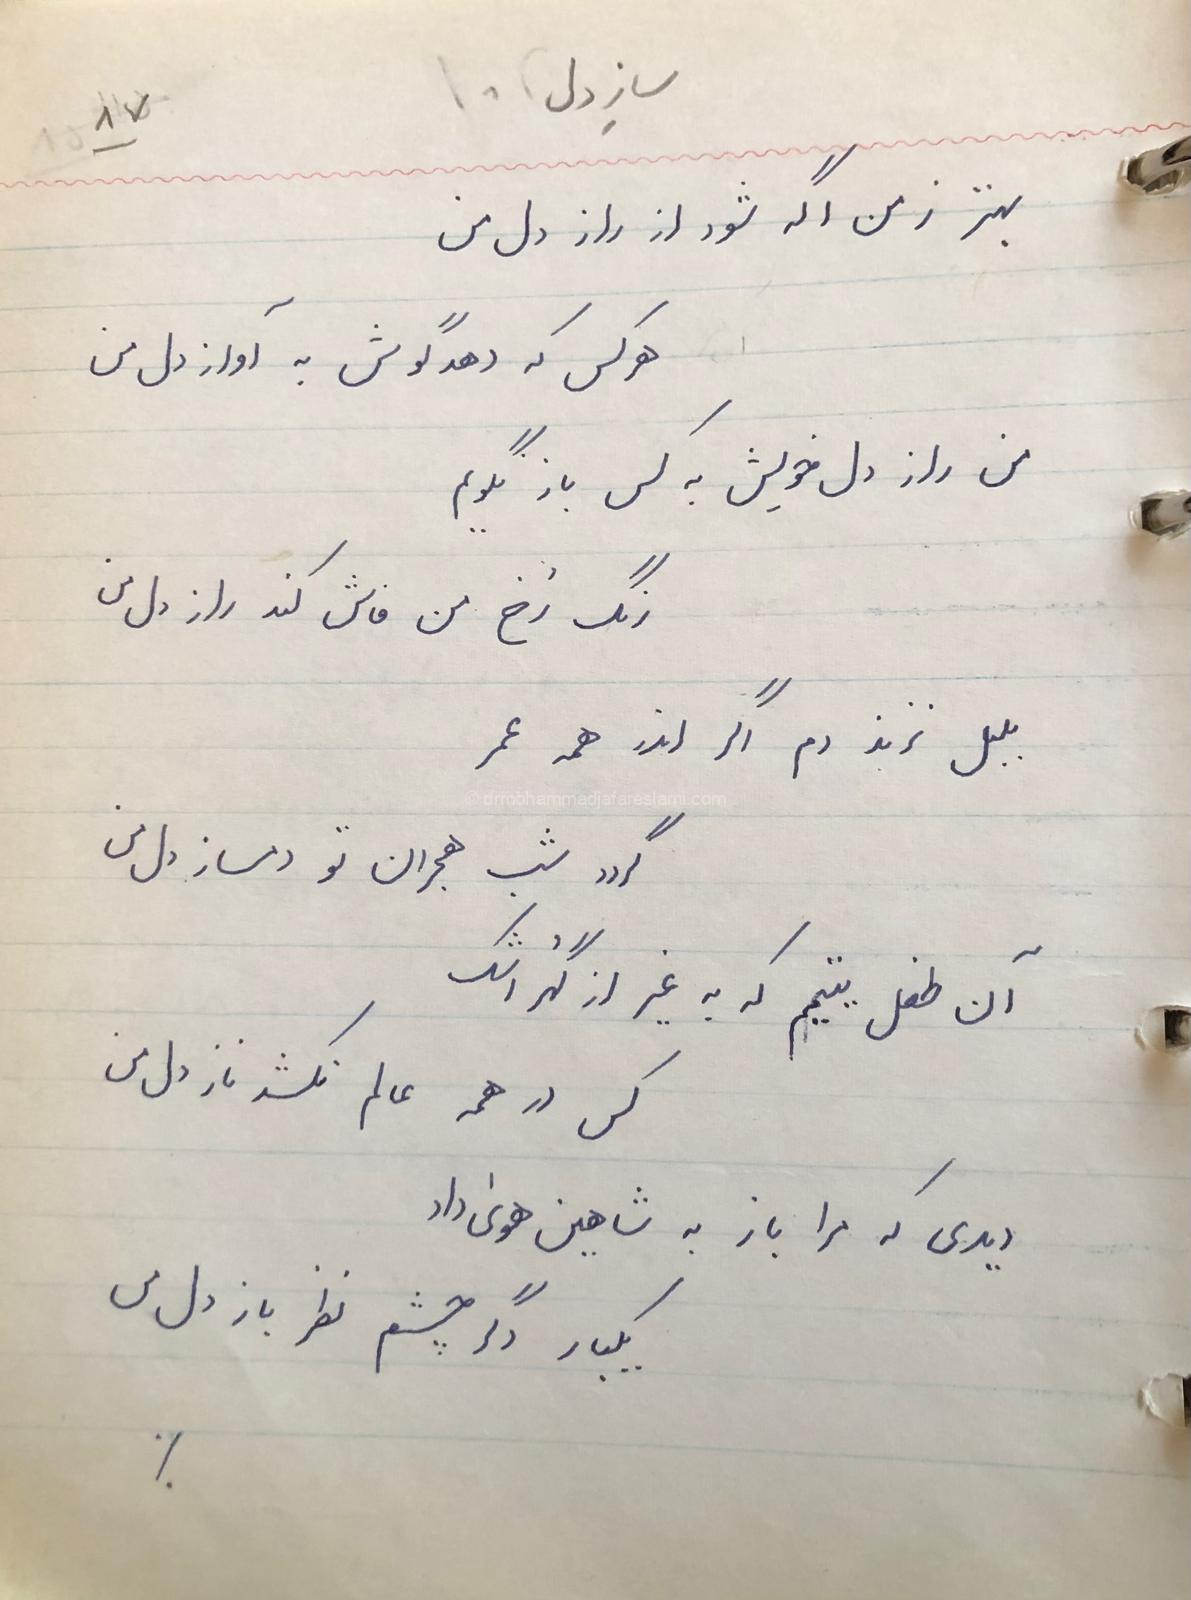 ساز دل
۸۷
بهتر ز من آگه شود از راز دل من
هر کس که دهد گوش به آواز دل من
من راز دل خویش به کس باز نگویم
رنگ رُخ من فاش کند راز دل من
بلبل نزند دم اگر اندر همه عمر
گردد شب هجران تو دمساز دل من
آن طفل یتیمم که به غیر از گُهر اشک
کس در همه عالم نکشد ناز دل من
دیدی که مرا باز به شاهین هوی داد
یکبار دگر چشم نظر باز دل من
© drmohammadjafareslami.com